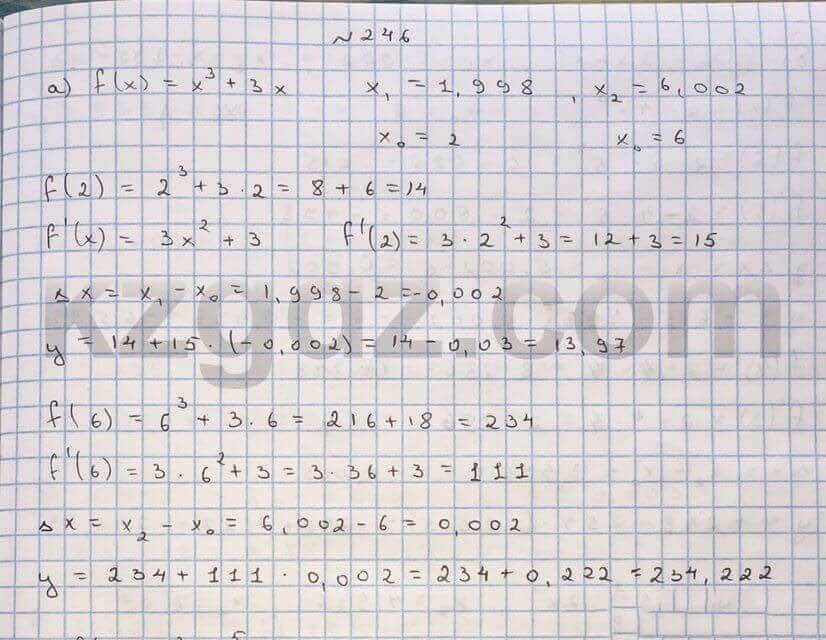 №246
а) f(x) = x³ + 3x x₁ = 1,998 , x₂ = 6,002
x₀ = 2 x₀ = 6
f(2) = 2³ + 3 · 2 = 8 + 6 = 14
f'(x) = 3x² + 3 f'(2) = 3 · 2² + 3 = 12 + 3 = 15
Δx = x₁ - x₀ = 1,998 - 2 = -0,002
kzgdz.com
y = 14 + 15 · (-0,002) = 14 - 0,03 = 13,97
f(6) = 6³ + 3 · 6 = 216 + 18 = 234
f'(6) = 3 · 6² + 3 = 3 · 36 + 3 = 111
Δx = x₂ - x₀ = 6,002 - 6 = 0,002
y = 234 + 111 · 0,002 = 234 + 0,222 = 234,222